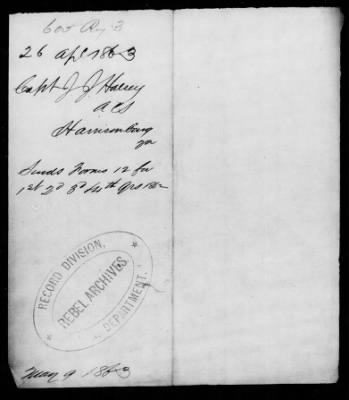 26 Apl 1863
Capt J J Halsey
ACS
Harrisonburg
Va
Sends Forms 12 for
1st 2d 3d 4th Qrs 1862
RECORD DIVISION,
REBEL ARCHIVES,
DEPARTMENT.
May 9 1863